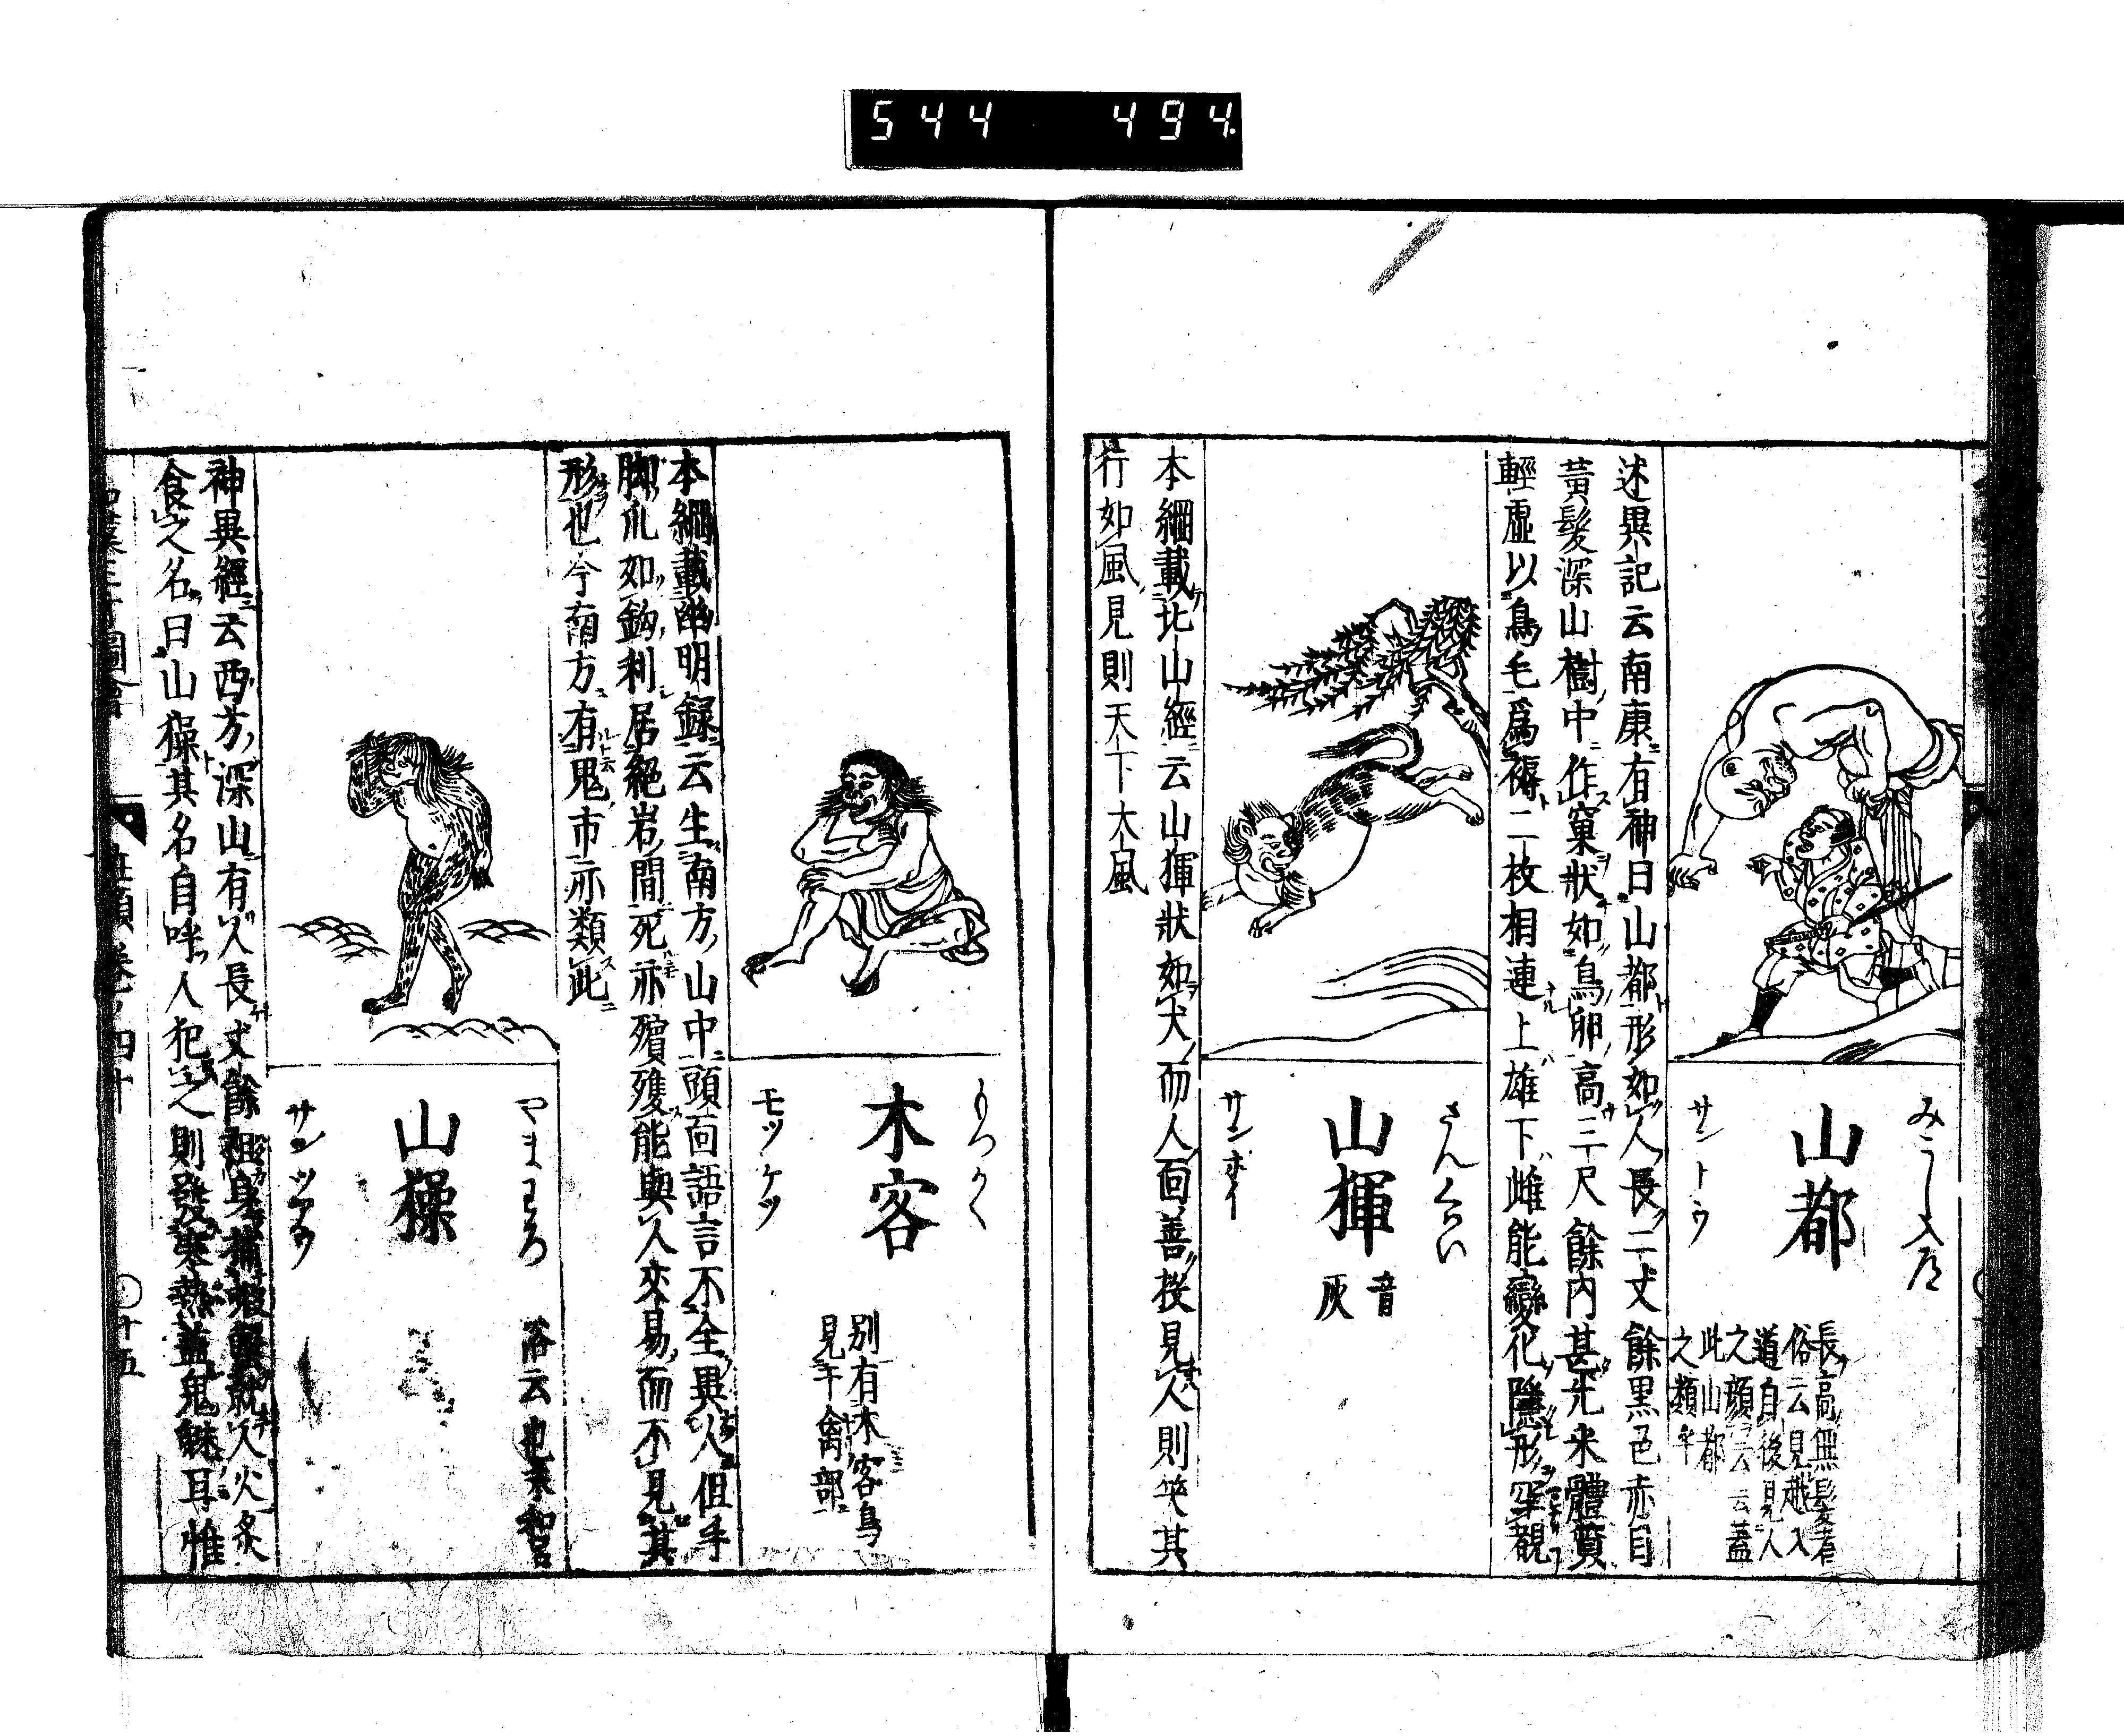 544 494.
みこし入道
山都
サントウ
長高無髮者
俗云見越入
道自後見人
之顔云云蓋
此山都
之類乎
述異記云南康有神曰山都形如人長二丈餘黒色赤目
黄髮深山樹中作窠狀如鳥卵高三尺餘内甚光米體質
輕虚以鳥毛爲褥二枚相連上雄下雌能變化隱形罕覩
さんくらい
山㺔
音
灰
サンホイ
本綱載北山經云山㺔狀如犬而人面善投見人則笑其
行如風見則天下大風
もつかく
木客
モツケツ
別有木客鳥
見于禽部
本綱載幽明録云生南方山中頭面語言不全異人但手
脚爪如鉤利居絕岩間死亦殯殮能與人交易而不見其
形也今南方有鬼市亦類此
やまわろ
山𤢖
サンツアウ
俗云也末和呂
神異經云西方深山有人長丈餘袒身捕蝦蟹就人火炙
食之名曰山𤢖其名自呼人犯之則發寒熱蓋鬼魅耳惟
圖會
類 卷ノ四十
〇十五